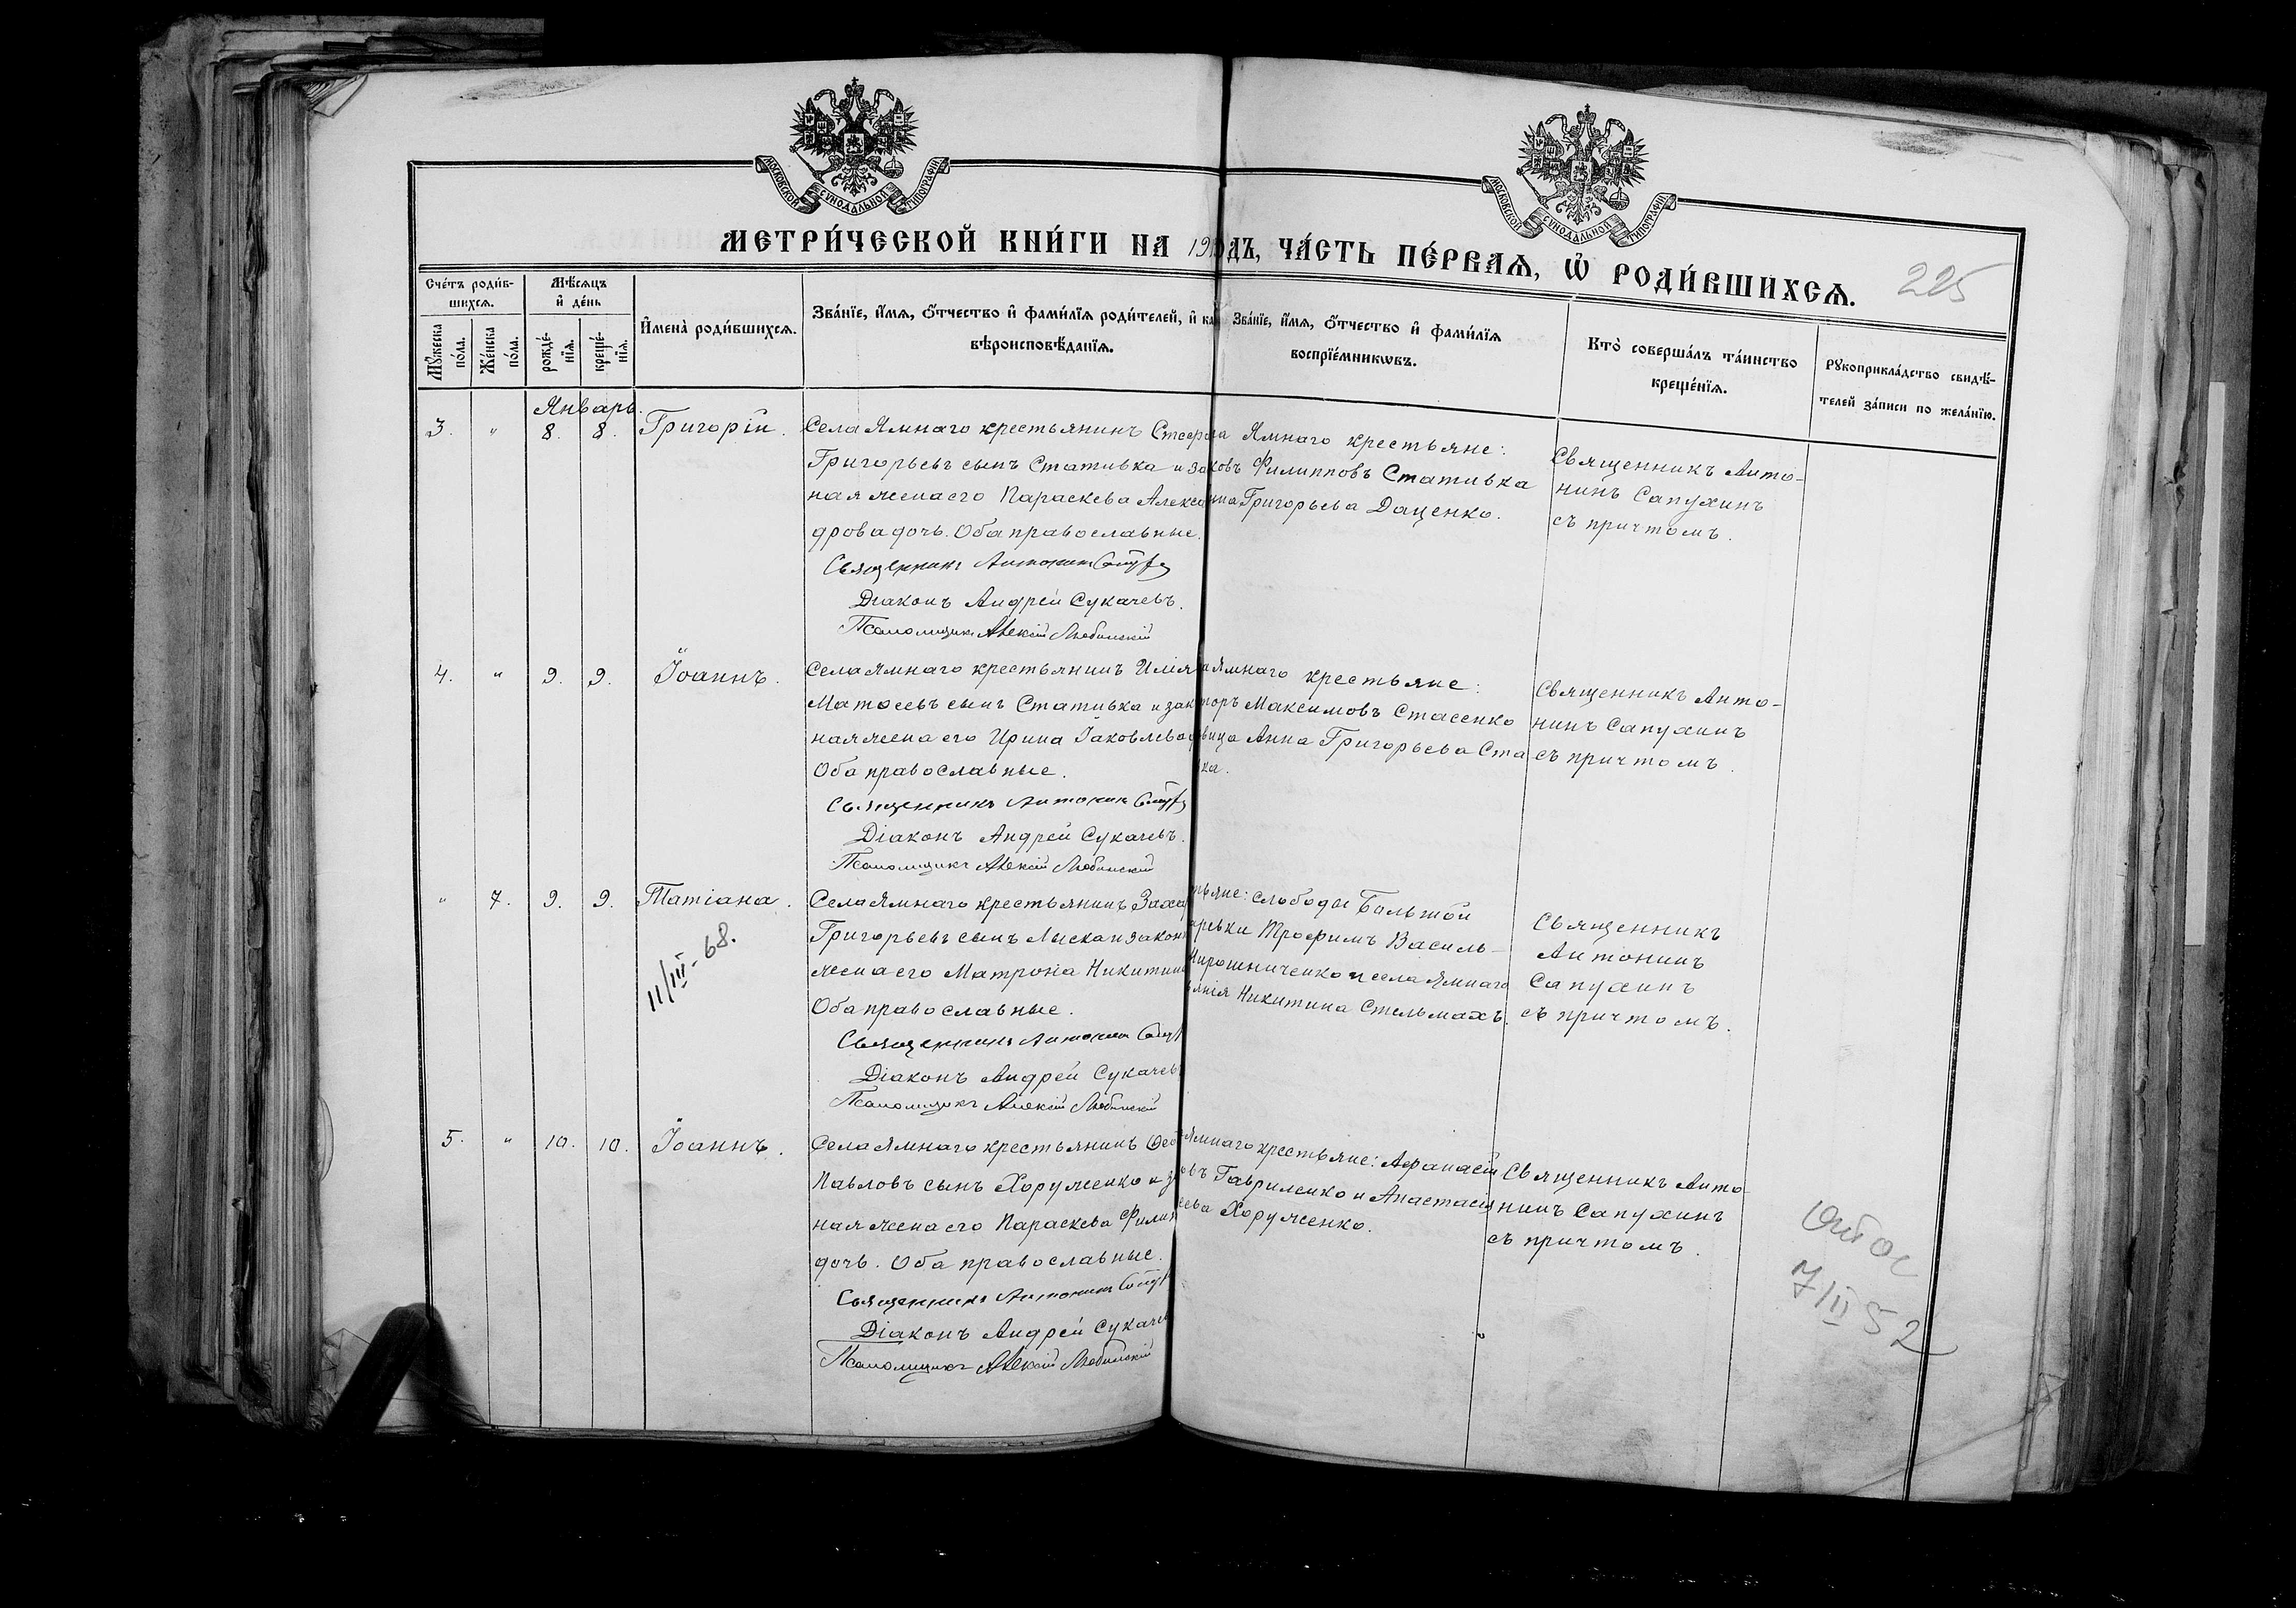 МОСКОВСКОЙ СѴНОДАЛЬНОЙ ТИПОГРАФІИ
МОСКОВСКОЙ СѴНОДАЛЬНОЙ ТИПОГРАФІИ
МЕТРИ́ЧЕСКОЙ КНИ́ГИ НА 19 ДЪ, ЧА́СТЬ ПЕ́РВАѦ, Ѡ҆ РОДИ́ВШИХСѦ.
225
Сче́тъ роди́в-
шихсѧ.
Мѣ́сѧцъ
и҆ де́нь
Мꙋ́жеска
по́ла.
Же́нска
по́ла.
рожде́-
нїѧ.
креще́-
нїѧ.
И҆мена̀ роди́вшихсѧ.
Зва́нїе, и҆́мѧ, ѻ҆́тчество и҆ фами́лїѧ роди́телей, и҆ ка
вѣроисповѣ́данїѧ.
Зва́нїе, и҆́мѧ, ѻ҆́тчество и҆ фами́лїѧ
воспрїе́мникѡвъ.
Кто̀ соверша́лъ та́инство
креще́нїѧ.
Рꙋкоприкла́дство свидѣ́-
телей за́писи по жела́нїю.
Январь.
3. " 8. 8. Григорій.
Села Ямнаго крестьянинъ Стефа
Григорьевъ сынъ Стативка и зак
ная жена его Параскева Алекса
дрова дочь. Оба православные.
Священникъ Антонинъ
Діаконъ Андрей Сукачевъ.
Псаломщикъ Алексій Любинскій
на Ямнаго крестьяне:
ковъ Филипповъ Стативка
Григорьева Даценко.
Священникъ Анто-
нинъ Сапухинъ
съ причтомъ.
4. " 9. 9. Іоаннъ.
Села Ямнаго крестьянинъ Илія
Матѳеевъ сынъ Стативка и зак
ная жена его Ирина Іаковлева
Оба православные.
Священникъ Антонинъ
Діаконъ Андрей Сукачевъ.
Псаломщикъ Алексій Любинскій
а Ямнаго крестьяне:
торъ Максимовъ Стасенко
вица Анна Григорьева Ста
ка.
Священникъ Анто-
нинъ Сапухинъ
съ причтомъ.
" 7. 9. 9. Татіана.
11/III-68.
Села Ямнаго крестьянинъ Заха
Григорьевъ сынъ Лыска и закон
жена его Матрона Никитина
Оба православные.
Священникъ Антонинъ
Діаконъ Андрей Сукачев
Псаломщикъ Алексій Любинскій
тьяне: слободы Большой
аревки Трофимъ Василь-
Мирошниченко и села Ямнаго
Никитина Стельмахъ.
Священникъ
Антонинъ
Сапухинъ
съ причтомъ.
5. " 10. 10. Іоаннъ.
Села Ямнаго крестьянинъ
Павловъ сынъ Хоруженко и з
ная жена его Параскева Филип
дочь. Оба православные.
Священникъ Антонинъ
Діаконъ Андрей Сукаче
Псаломщикъ Алексій Любинскій
Ямнаго крестьяне: Афанасій
овъ Гавриленко и Анастасія
еева Хоруженко.
Священникъ Анто-
нинъ Сапухинъ
съ причтомъ.
7/II 52